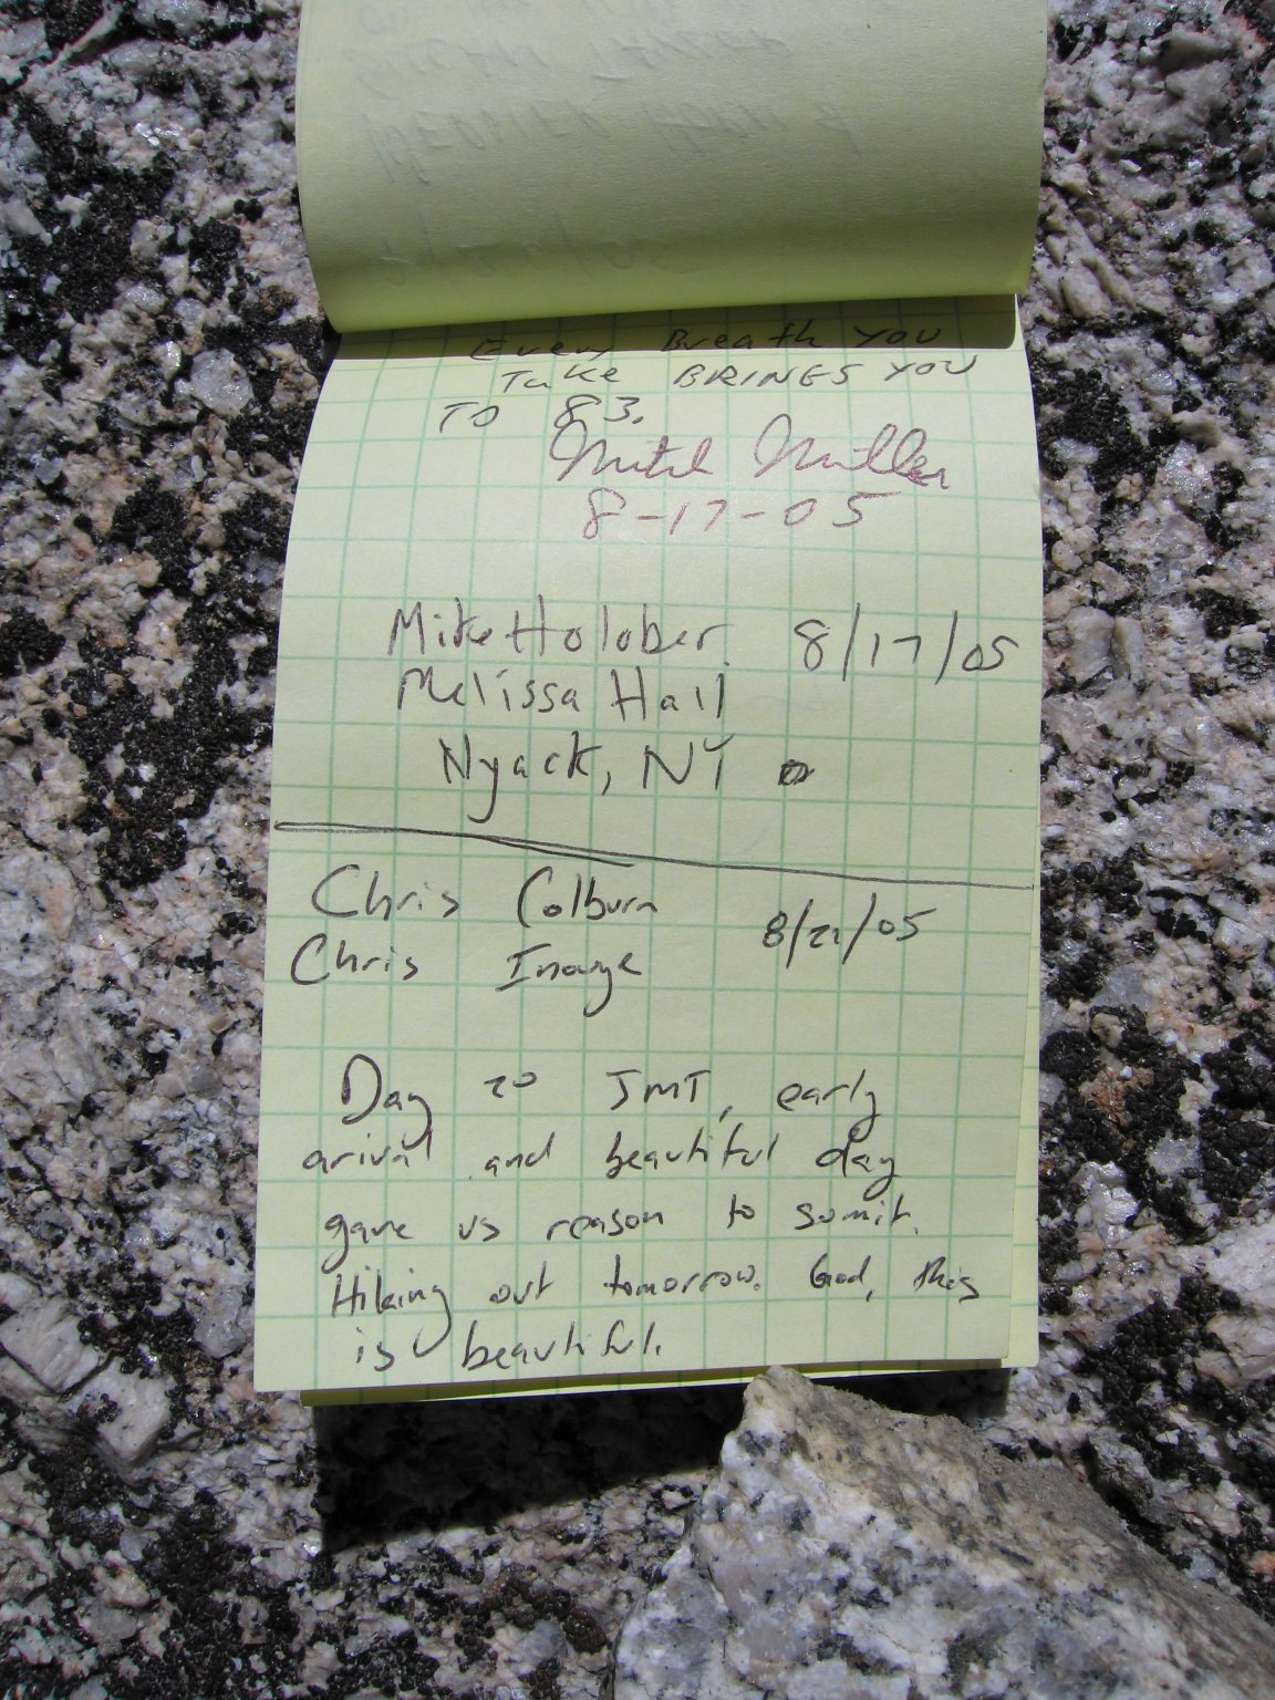 Every Breath YOU
Take BRINGS YOU
TO 83.
Mitch Miller
8-17-05
Mike Holober 8/17/05
Melissa Hall
Nyack, NY
Chris Colburn
8/21/05
Chris Inouye
Day 20 JMT, early
arival and beautiful day
gave us reason to somit.
Hiking out tomorrow. God, this
is beautiful.